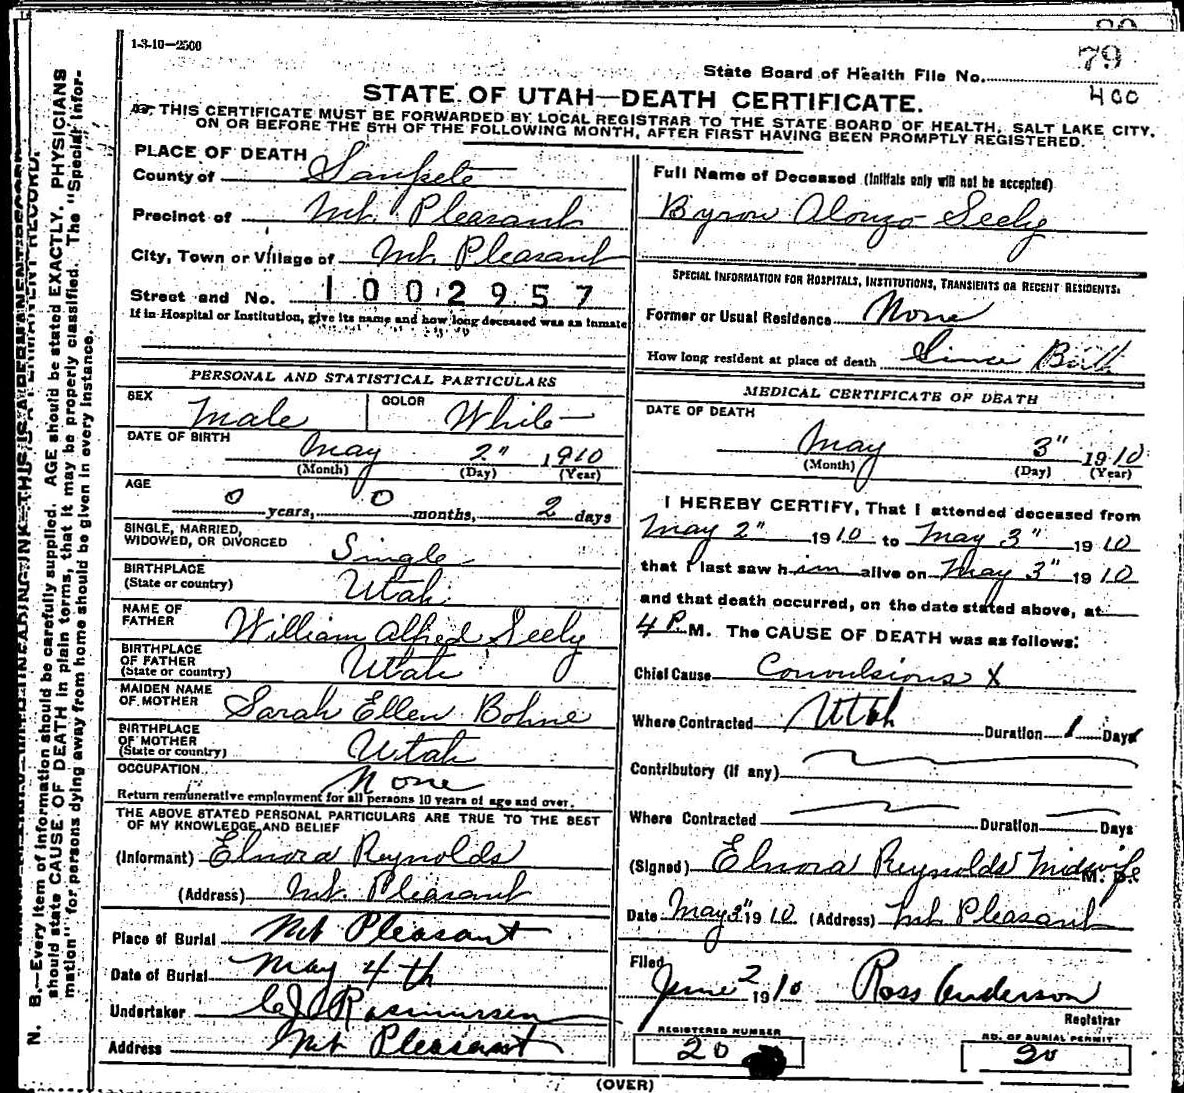 1-3-10—2500
79
State Board of Health File No.
400
STATE OF UTAH—DEATH CERTIFICATE.
THIS CERTIFICATE MUST BE FORWARDED BY LOCAL REGISTRAR TO THE STATE BOARD OF HEALTH, SALT LAKE CITY,
ON OR BEFORE THE 5TH OF THE FOLLOWING MONTH, AFTER FIRST HAVING BEEN PROMPTLY REGISTERED.
PLACE OF DEATH
County of Sanpete
Precinct of Mt. Pleasant
City, Town or Village of Mt. Pleasant
Street and No. 1002957
If in Hospital or Institution, give its name and how long deceased was an inmate
PERSONAL AND STATISTICAL PARTICULARS
SEX Male COLOR White
DATE OF BIRTH May 2" 1910
(Month) (Day) (Year)
AGE
0 years, 0 months, 2 days
SINGLE, MARRIED,
WIDOWED, OR DIVORCED Single
BIRTHPLACE
(State or country) Utah
NAME OF
FATHER William Alfred Seely
BIRTHPLACE
OF FATHER
(State or country) Utah
MAIDEN NAME
OF MOTHER Sarah Ellen Bohne
BIRTHPLACE
OF MOTHER
(State or country) Utah
OCCUPATION None
Return remunerative employment for all persons 10 years of age and over.
THE ABOVE STATED PERSONAL PARTICULARS ARE TRUE TO THE BEST
OF MY KNOWLEDGE AND BELIEF
(Informant) Elnora Reynolds
(Address) Mt. Pleasant
Place of Burial Mt Pleasant
Date of Burial May 4th
Undertaker C J Rasmussen
Address Mt Pleasant
Full Name of Deceased (Initials only will not be accepted)
Byron Alonzo Seely
SPECIAL INFORMATION FOR HOSPITALS, INSTITUTIONS, TRANSIENTS OR RECENT RESIDENTS:
Former or Usual Residence None
How long resident at place of death Since Birth
MEDICAL CERTIFICATE OF DEATH
DATE OF DEATH
May 3" 1910
(Month) (Day) (Year)
I HEREBY CERTIFY, That I attended deceased from
May 2" 1910 to May 3" 1910
that I last saw him alive on May 3" 1910
and that death occurred, on the date stated above, at
4 P. M. The CAUSE OF DEATH was as follows:
Chief Cause Convulsions X
Where Contracted Utah Duration 1 Days
Contributory (if any)
Where Contracted Duration Days
(Signed) Elnora Reynolds Midwife M. D.
Date May 3" 1910 (Address) Mt. Pleasant
Filed
June 2 1910 Ross Anderson
Registrar
REGISTERED NUMBER
20
NO. OF BURIAL PERMIT
20
(OVER)
N. B.—Every item of information should be carefully supplied. AGE should be stated EXACTLY. PHYSICIANS
should state CAUSE OF DEATH in plain terms, that it may be properly classified. The "Special Infor-
mation" for persons dying away from home should be given in every instance.